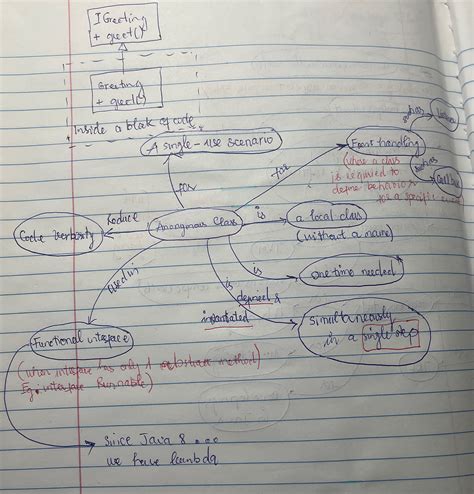 IGreeting
+ greet()
Greeting
+ greet()
Inside a block of code
A single-use scenario
Event handling
such as
such as
Callback
(where a class
is required to
define behavior
for a specific
for
for
Anonymous Class
Reduce
Code verbosity
is
a local class
(without a name)
is
one time needed
used in
is
defined &
instantiated
Simultaneously
in a single step
Functional interface
(when interface has only 1 abstract method)
Eg: interface Runnable)
since Java 8 ...
we have lambda